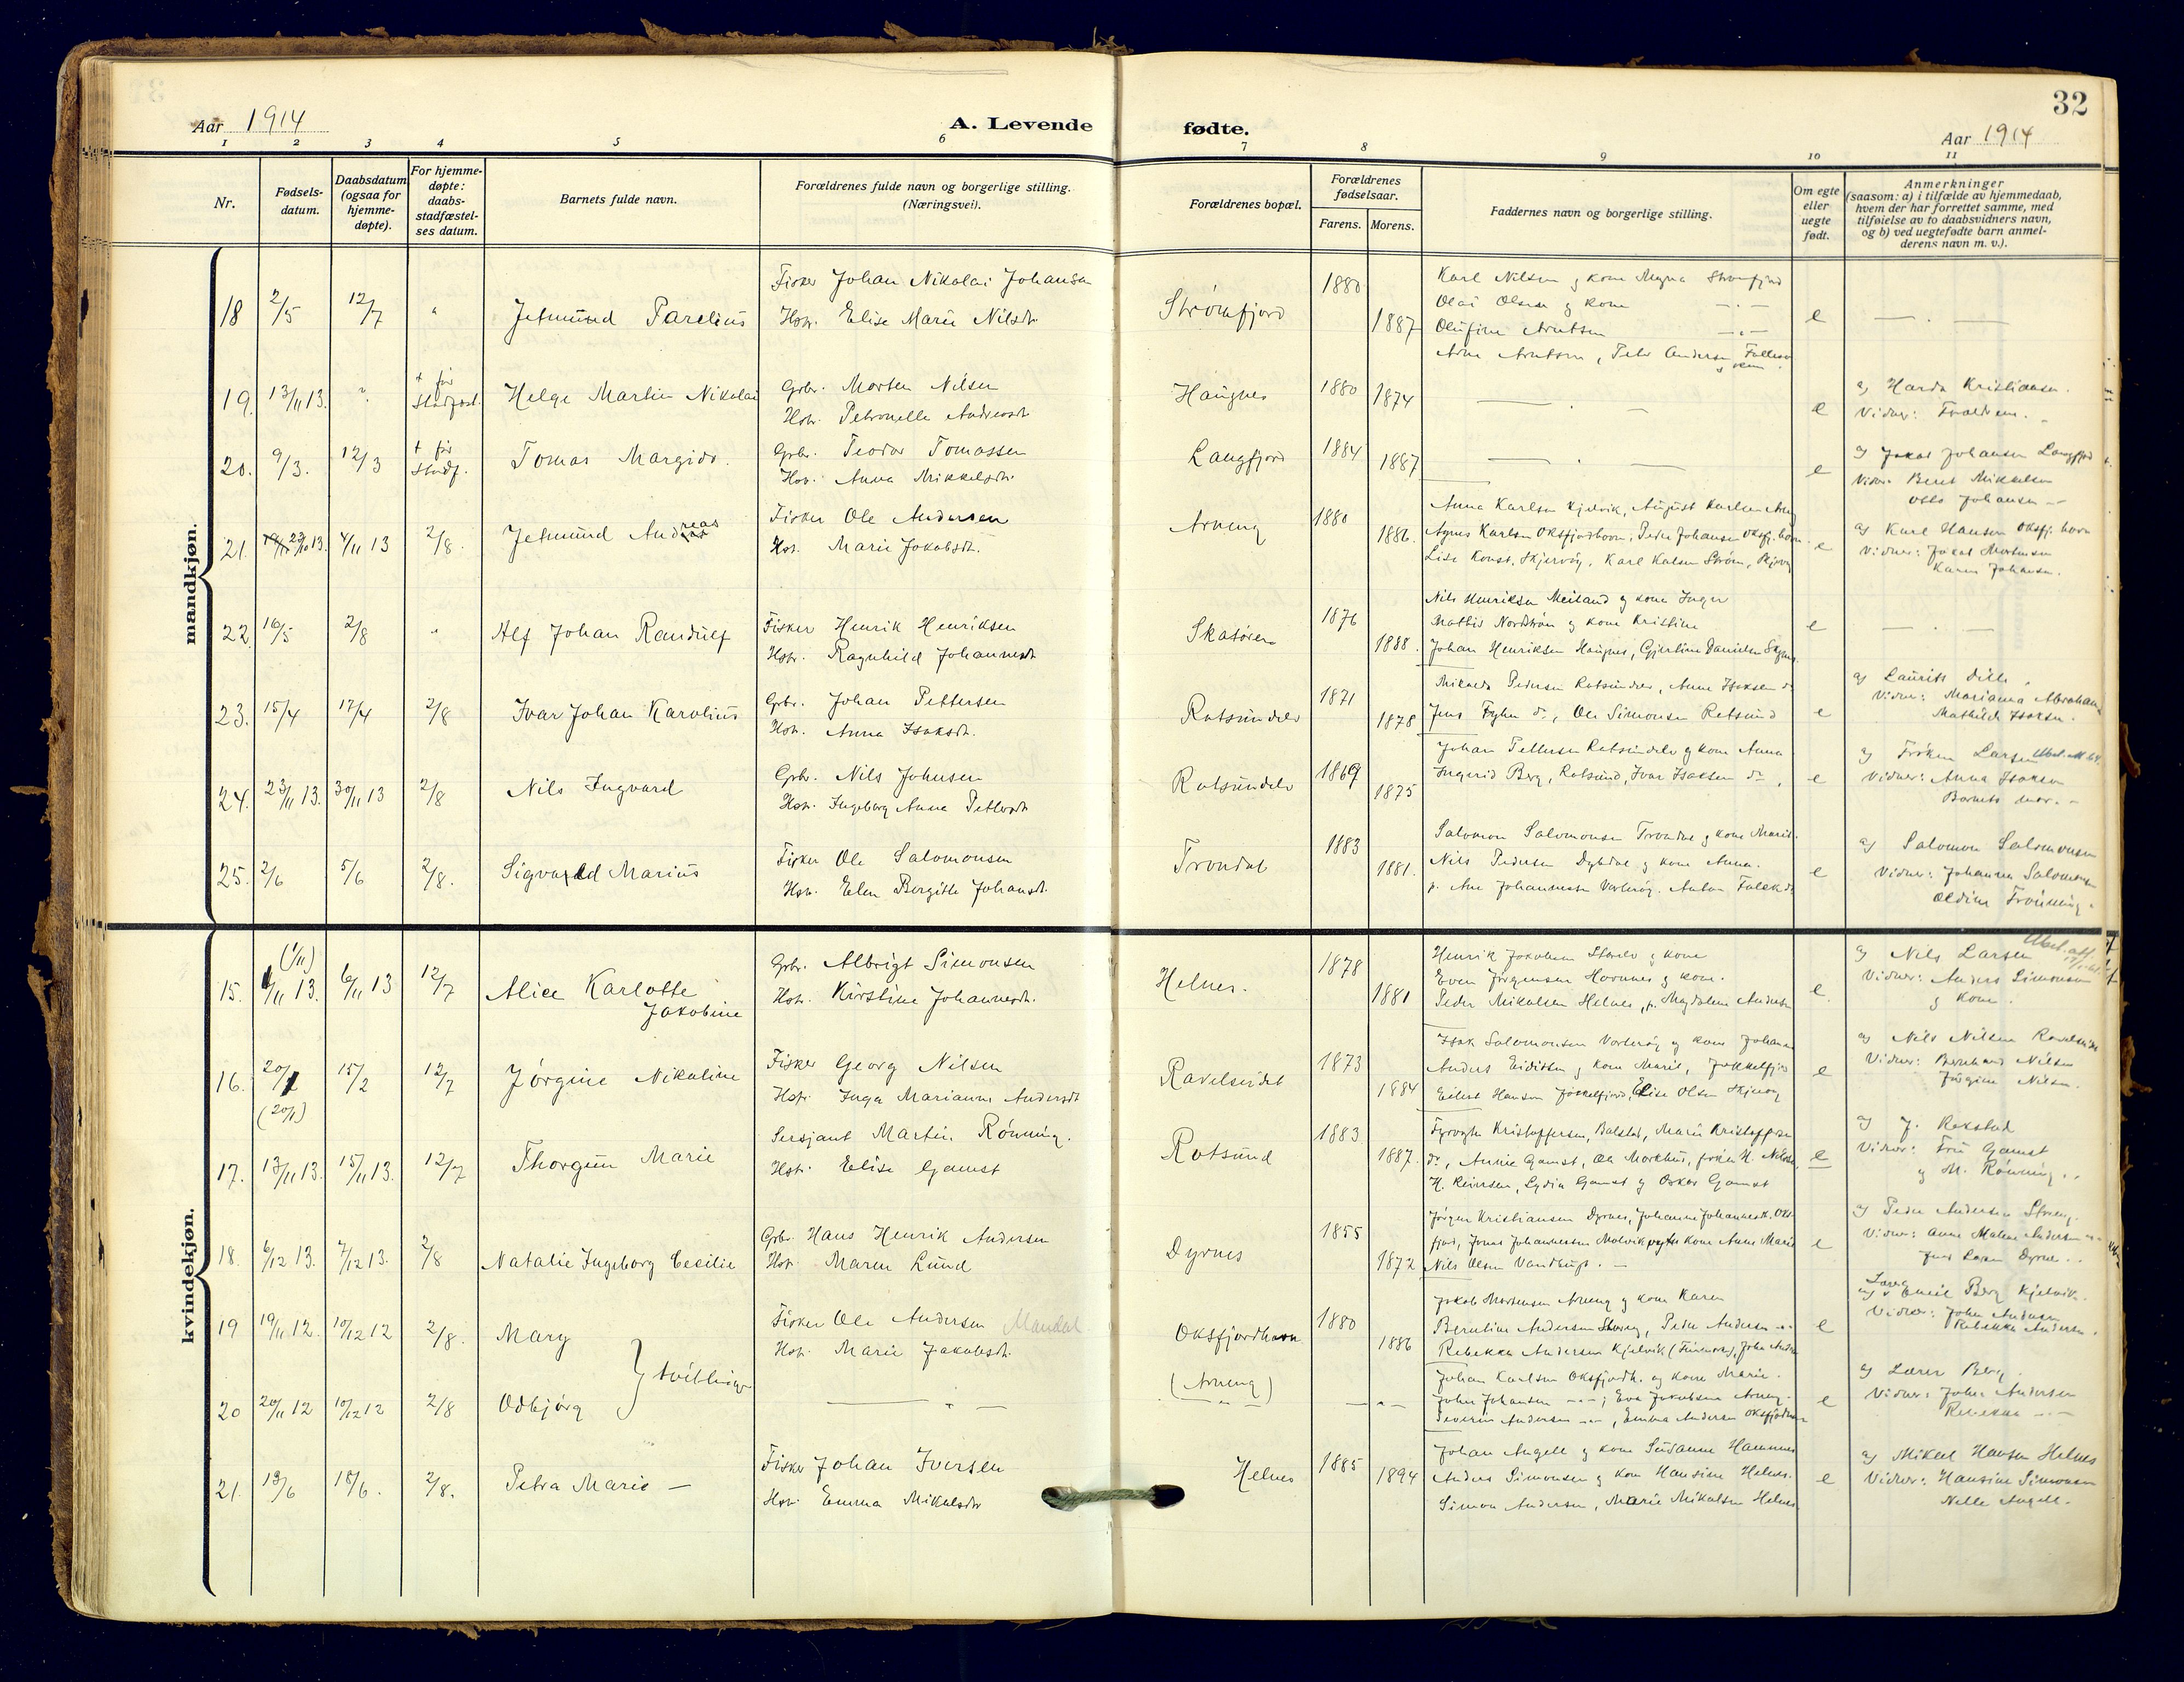 32
Aar 1914
A. Levende fødte.
Aar 1914
1 2 3 4 5 6 7 8 9 10 11
Nr.
Fødsels-
datum.
Daabsdatum
(ogsaa for
hjemme-
døpte).
For hjemme-
døpte:
daabs-
stadfæstel-
ses datum.
Barnets fulde navn.
Forældrenes fulde navn og borgerlige stilling.
(Næringsvei).
Forældrenes bopæl.
Forældrenes
fødselsaar.
Farens. Morens.
Faddernes navn og borgerlige stilling.
Om egte
eller
uegte
født.
Anmerkninger
(saasom: a) i tilfælde av hjemmedaab,
hvem der har forrettet samme, med
tilføielse av to daabsvidners navn,
og b) ved uegtefødte barn anmel-
derens navn m. v.).
mandkjøn.
18 2/5 12/7 " Jetmund Parelius
Fisker Johan Nikolai Johansen
Hstr. Elise Marie Nilsdtr.
Strømfjord 1880 1887
Karl Nilsen og kone Magna Strømfjord
Olai Olsen og kone
Olufine Arntsen
Arne Arntsen, Peder Andersen
e
19. 13/11 13. " + før Stadfæst. Helge Martin Nikolai
Gbr. Morten Nilsen
Hstr. Petronelle Andreasdtr.
Haugnes 1880 1874
e
av Harda Kristiansen.
Vidner: Forældrene.
20. 9/3. 12/3 + før Stadf. Tomas Margido.
Gbr. Teodor Tomassen
Hstr. Anna Mikkelsdtr.
Langfjord 1884 1887
e
av Jakob Johansen Langfjord
Vidner: Beret Mikkelsen
Otto Johansen
21. 23/10 13. 4/11 13 2/8. Jetmund Andreas
Fisker Ole Andersen
Hst. Marie Jakobsdt.
Arnøng 1880 1886.
Anna Karlsen Kjelvik, August Karlsen
Agnes Karlsen Oksfjordhavn, Peder Johansen Oksfj. havn
Lise Konst. Skjervøy, Karl Kalsen Strøm, Skjervøy
e
av Karl Hansen Oksfj. havn
Vidner: Jakob Mortensen
Karen Johansen.
22. 16/5 2/8 " Alf Johan Randulf
Fisker Henrik Henriksen
Hstr. Ragnhild Johannesdt.
Skatøren 1876 1888.
Nils Henriksen Meiland og kone Inger
Mathis Nordstrøm og kone Kristine
Johan Henriksen Haugnes, Gjertine Danielsen
e
23. 15/4 17/4 2/8 Ivar Johan Karolius
Gbr. Johan Pettersen
Hstr. Anna Isaksdt.
Rotsundelv 1871 1878
Mikael Pedersen Rotsundelv, Anne Isaksen do
Jens Fyhn do., Ole Simonsen Rotsund
e
av Laurits Dille.
Vidner: Marianna Abrahams
Mathilde Isaksen.
24. 23/11 13. 30/11 13 2/8 Nils Ingvard
Gbr. Nils Johnsen
Hstr. Ingeborg Anna Pettersdt
Rotsundelv 1869 1875
Johan Pettersen Rotsundelv og kone Anna
Ingerid Berg, Rotsund, Ivar Isaksen do
e
av Frøken Larsen
Vidner: Anna Isaksen
Barnets mor.
25. 2/6 5/6 2/8. Sigvald Marius
Fisker Ole Salomonsen
Hstr. Elen Bergithe Johansdt.
Trondal 1883 1881.
Salomon Salomonsen Trondal og kone Marit.
Nils Pedersen Dybdal og kone Anna.
p. Ane Johannessen Vorterøy. Anton Falck do
e
av Salomon Salomonsen
Vidner: Johanna Salomonsen
Oldine Trønning.
kvindekjøn.
15. (1/11) 6/11 13. 6/11 13 12/7 Alice Karlotte Jakobine
Gbr. Albrigt Simonsen
Hstr. Kirstine Johannesdt.
Helnes. 1878 1881
Henrik Jakobsen Storelv og kone
Even Jørgensen Havnnes og kone.
Peder Mikalsen Helnes, p. Magdalene Andersen
e.
av Nils Larsen
Vidner: Anders Simonsen
og kone.
16. 20/1 (20/1) 15/2 12/7 Jørgine Nikoline
Fisker Georg Nilsen
Hstr. Inga Marianne Andersdt
Ravelseidet 1873 1884
Isak Salomonsen Vorterøy og kone Johanna
Anders Eidissen og kone Marie, Jøkkelfjord
Eilert Hansen Jøkkelfjord, Elise Olsen Skjervøy
e
av Nils Nilsen Ravelseidet
Vidner: Bernhard Nilsen
Jørgine Nilsen.
17. 13/11 13. 15/11 13. 12/7 Thorgun Marie
Sersjant Martin Rønning.
Hstr. Elise Gamst
Rotsund 1883 1887.
Kristoffersen, Balstad, Marie Kristoffersen
do., Annie Gamst, Ole Morkhus, frøken H. Nilsen
H. Reiersen, Lydia Gamst og Oskar Gamst
e
av J. Rekstad
Vidner: Fru Gamst
og M. Rønning.
18. 6/12 13. 7/12 13. 2/8 Natalie Ingeborg Cecilie
Gbr. Hans Henrik Andersen
Hstr. Maren Lund
Dyrnes 1855 1872
Jørgen Kristiansen Dyrnes, Johanne Johannesdt. Oks-
fjord, Jonas Johannessen Molvik og kone Anne Marie
Nils Olsen
e
av Peder Andersen
Vidner: Anne Malene Andersen
Jens Larsen Dyrnes.
19 19/11 12. 10/12 12 2/8. Mary
Fisker Ole Andersen Mandal
Hstr. Marie Jakobsdt.
Oksfjordhavn 1880 1886
Jakob Mortensen Arnøng og kone Karen
Berntine Andersen, Peder Andersen
Rebekka Andersen Kjelvik (Finmark), John Andersen
e
av Lærer Emil Berg Kjelvik.
Vidner: John Andersen
Rebekka Andersen.
tvillinger
20 20/11 12 10/12 12 2/8 Odbjørg
(Arnøng)
Johan Karlsen Oksfjordh. og kone Marie.
John Johansen; Eva Jakobsen Arnøng.
Severin Andersen, Emma Andersen Oksfjordhavn
e
av Lærer Berg.
Vidner: John Andersen
Rebekka
21. 13/6 15/6. 2/8. Petra Marie
Fisker Johan Iversen
Hstr. Emma Mikalsdtr
Helnes 1885 1894
Johan Angell og kone Susanne Hamnnes
Anders Simonsen og kone Hansine Helnes.
Simon Andersen, Marie Mikalsen Helnes
e
av Mikal Hansen Helnes
Vidner: Hansine Simonsen
Nelle Angell.